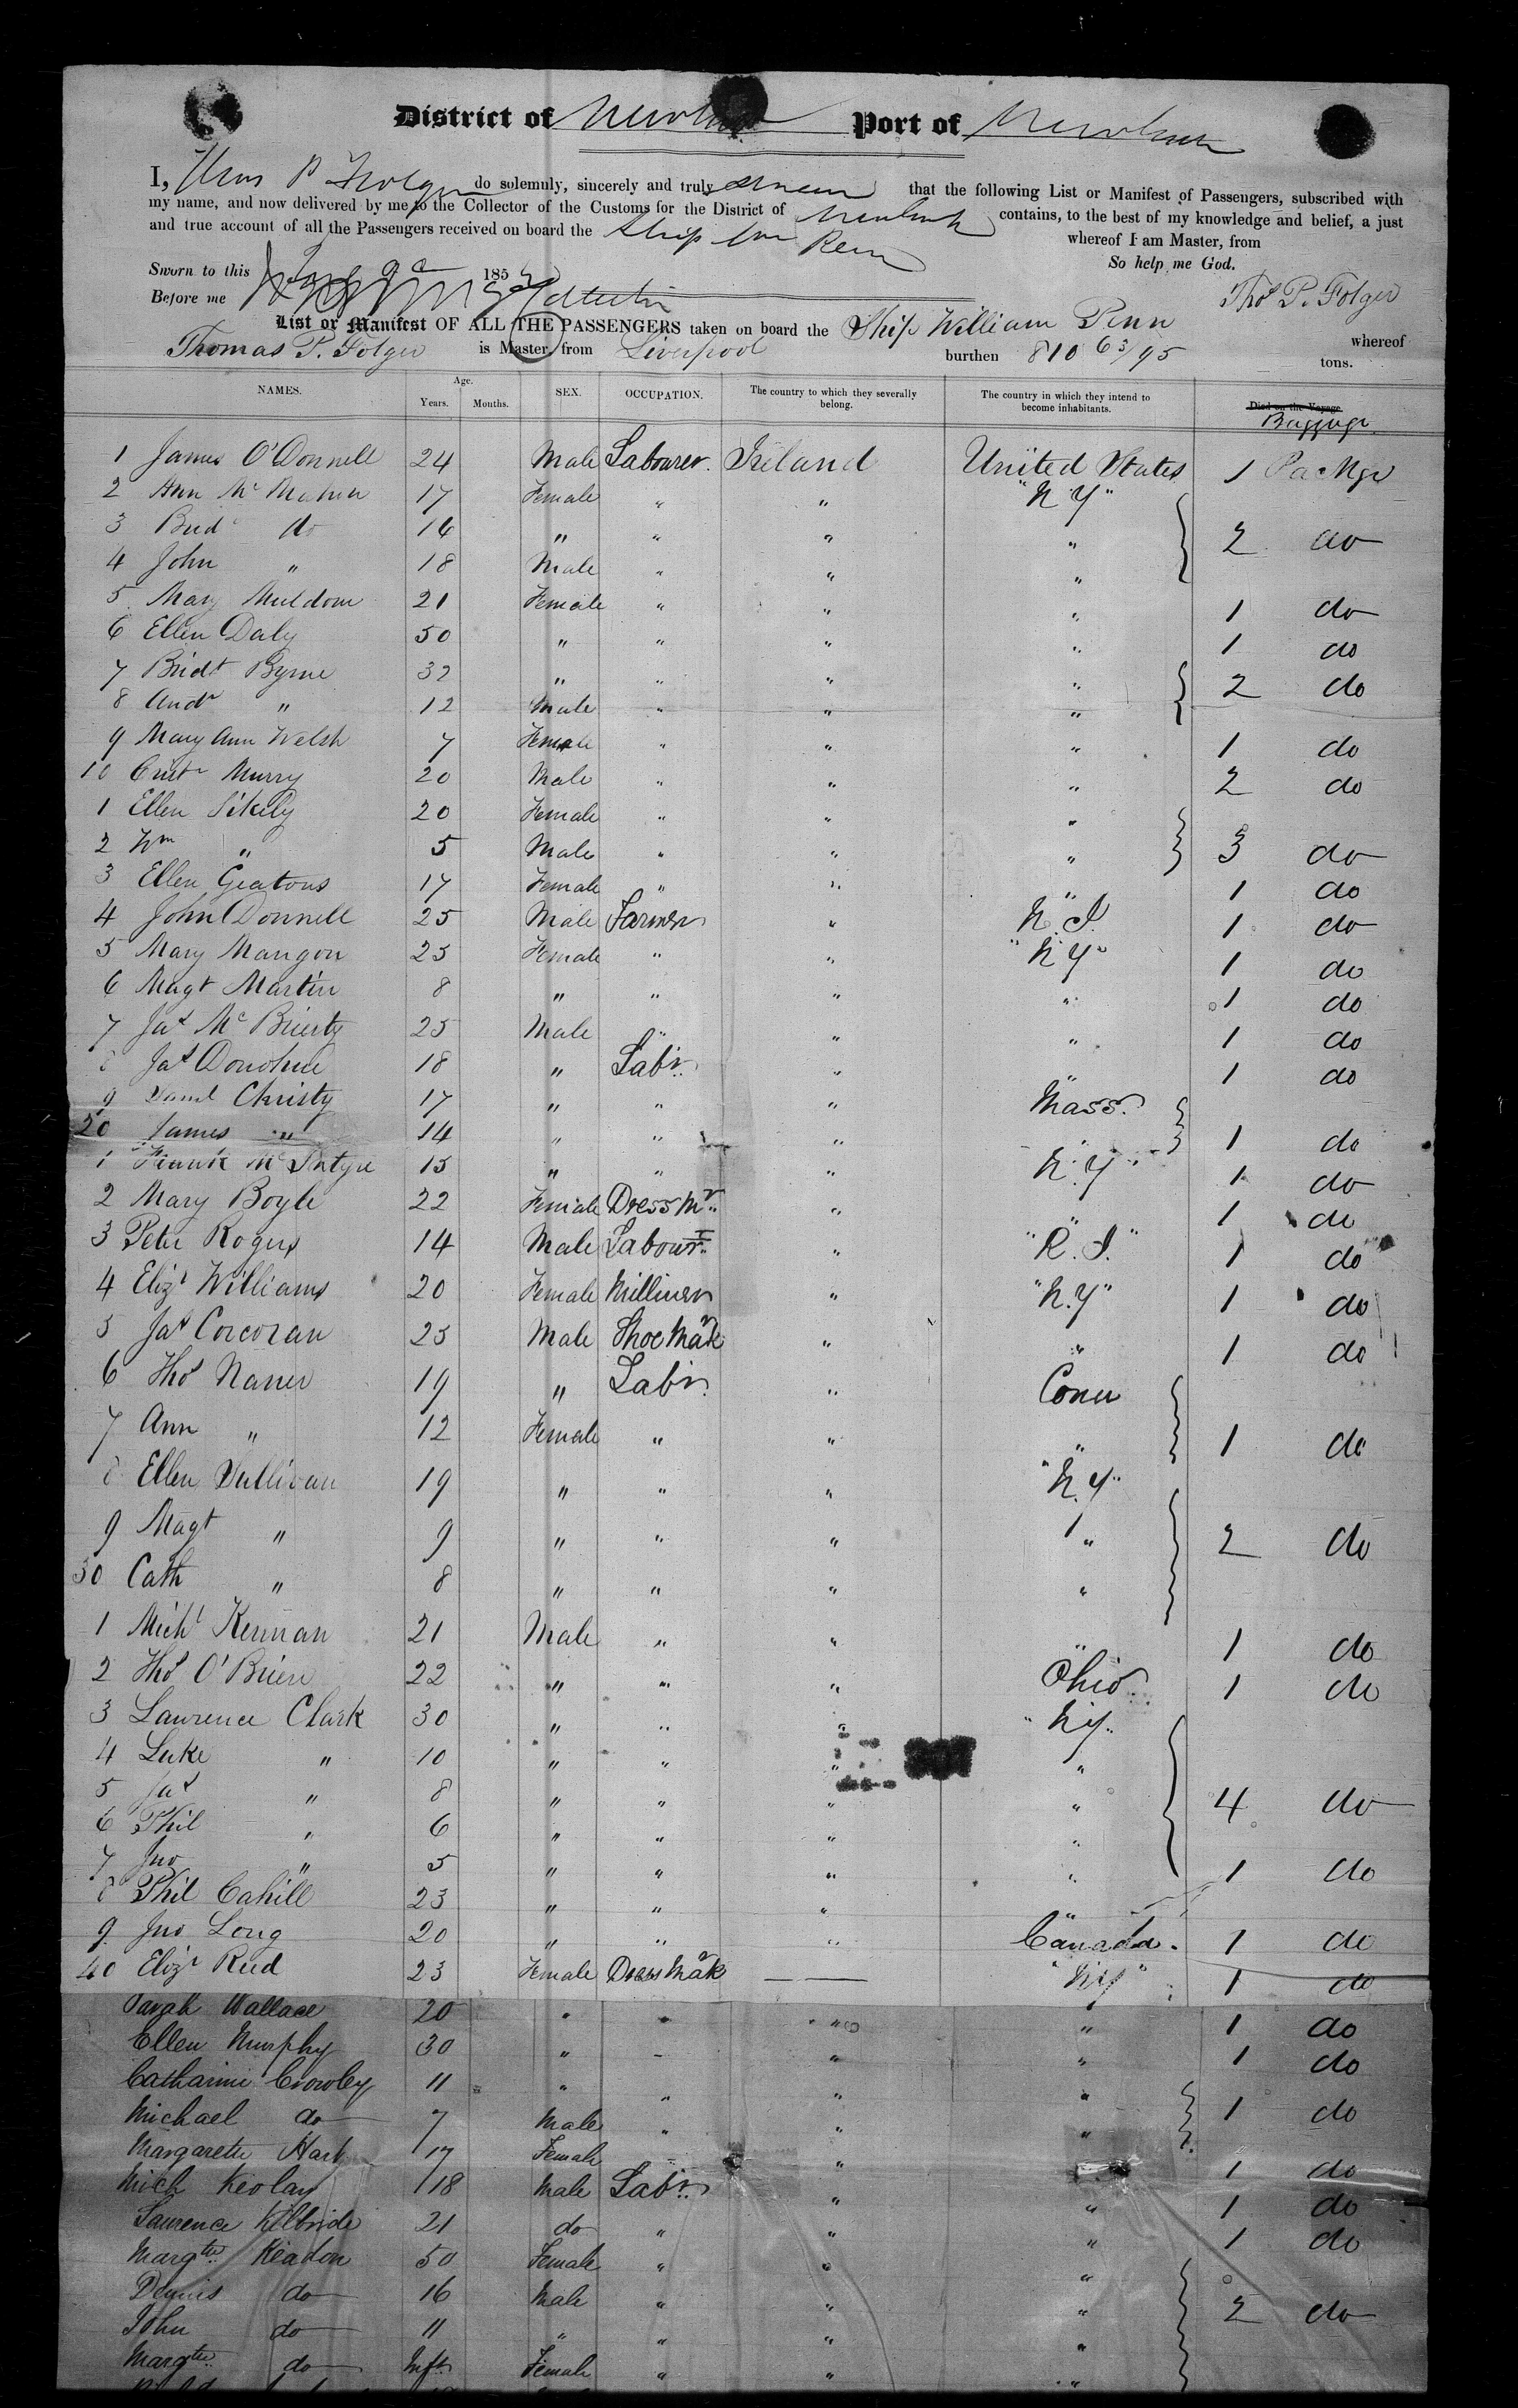 District of New York Port of New York
I, Thos P Folger do solemnly, sincerely and truly swear that the following List or Manifest of Passengers, subscribed with
my name, and now delivered by me to the Collector of the Customs for the District of New York contains, to the best of my knowledge and belief, a just
and true account of all the Passengers received on board the Ship Wm Penn whereof I am Master, from
Sworn to this 185 So help me God.
Before me Thos P. Folger
List or Manifest OF ALL THE PASSENGERS taken on board the Ship William Penn whereof
Thomas P. Folger is Master, from Liverpool burthen 810 63/95 tons.
NAMES. Age. Years. Months. SEX. OCCUPATION. The country to which they severally belong. The country in which they intend to become inhabitants. Died on the Voyage Baggage
1 James O'Donnell 24 Male Labourer. Ireland United States 1 Package
2 Ann McMahon 17 Female " " "N Y"
3 Brid do 16 " " " " 2 do
4 John " 18 Male " " "
5 Mary Muldoon 21 Female " " " 1 do
6 Ellen Daly 50 " " " " 1 do
7 Bridt Byrne 32 " " " " 2 do
8 Andw " 12 Male " " "
9 Mary Ann Welsh 7 Female " " " 1 do
10 Murry 20 Male " " " 2 do
1 Ellen 20 Female " " "
2 Wm " 5 Male " " " 3 do
3 Ellen 17 Female " " " 1 do
4 John Donnell 25 Male Farmer " N. J. 1 do
5 Mary Mangon 25 Female " " "N Y" 1 do
6 Magt Martin 8 " " " " 1 do
7 Jas 25 Male " " " 1 do
8 Jas Donohue 18 " Labr. " " 1 do
9 Saml Christy 17 " " " Mass.
20 James " 14 " " " 1 do
1 Frank McIntyre 15 " " " N. Y. 1 do
2 Mary Boyle 22 Female Dress Mr " " 1 do
3 Peter Rogers 14 Male Labourr " "R. I." 1 do
4 Elizt Williams 20 Female Milliner " "N.Y" 1 do
5 Jas Corcoran 25 Male Shoe Makr " " 1 do
6 Thos 19 " Labr. " Conn
7 Ann " 12 Female " " " 1 do
8 Ellen Sullivan 19 " " " "N.Y"
9 Magt " 9 " " " " 2 do
30 Cath " 8 " " " "
1 Michl Kernan 21 Male " " " 1 do
2 Thos O'Brien 22 " " " Ohio 1 do
3 Lawrence Clark 30 " " " "N.Y."
4 Luke " 10 " " " "
5 Jas " 8 " " " " 4 do
6 Phil " 6 " " " "
7 Jno " 5 " " " "
8 Phil Cahill 23 " " " " 1 do
9 Jno Long 20 " " " Canada. 1 do
40 Elizt Reid 23 Female Dress Makr "N.Y" 1 do
Sarah Wallace 20 " " " " 1 do
Ellen Murphy 30 " " " 1 do
Catharine Crowley 11 " " " "
Michael do 7 Male " " " 1 do
Margarette Hart 17 Female " " 1 do
Mich 18 Male Labr. " " 1 do
Laurence Kilbride 21 do " " " 1 do
Margtte Readon 50 Female " " "
Dennis do 16 Male " " " 2 do
John do 11 " " " "
Margtte do Inft Female " " "